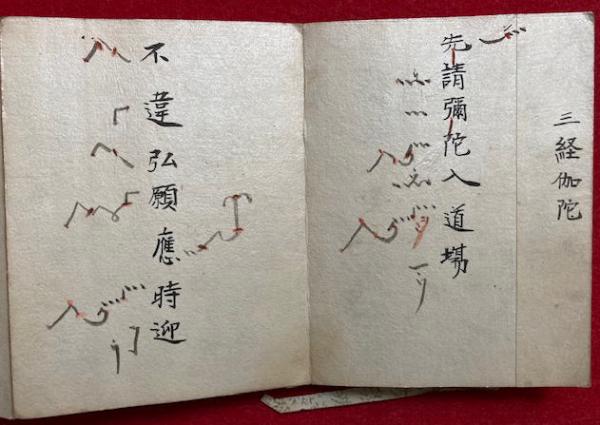 三経伽陀
先請彌陀入道場
不違弘願應時迎